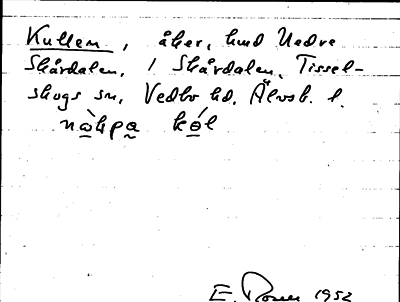 Kullen, åker, hmd Nedre
Skårdalen, 1 Skårdalen, Tissel-
skogs sn, Vedbo hd, Älvsb. l.
E. Rosen 1952